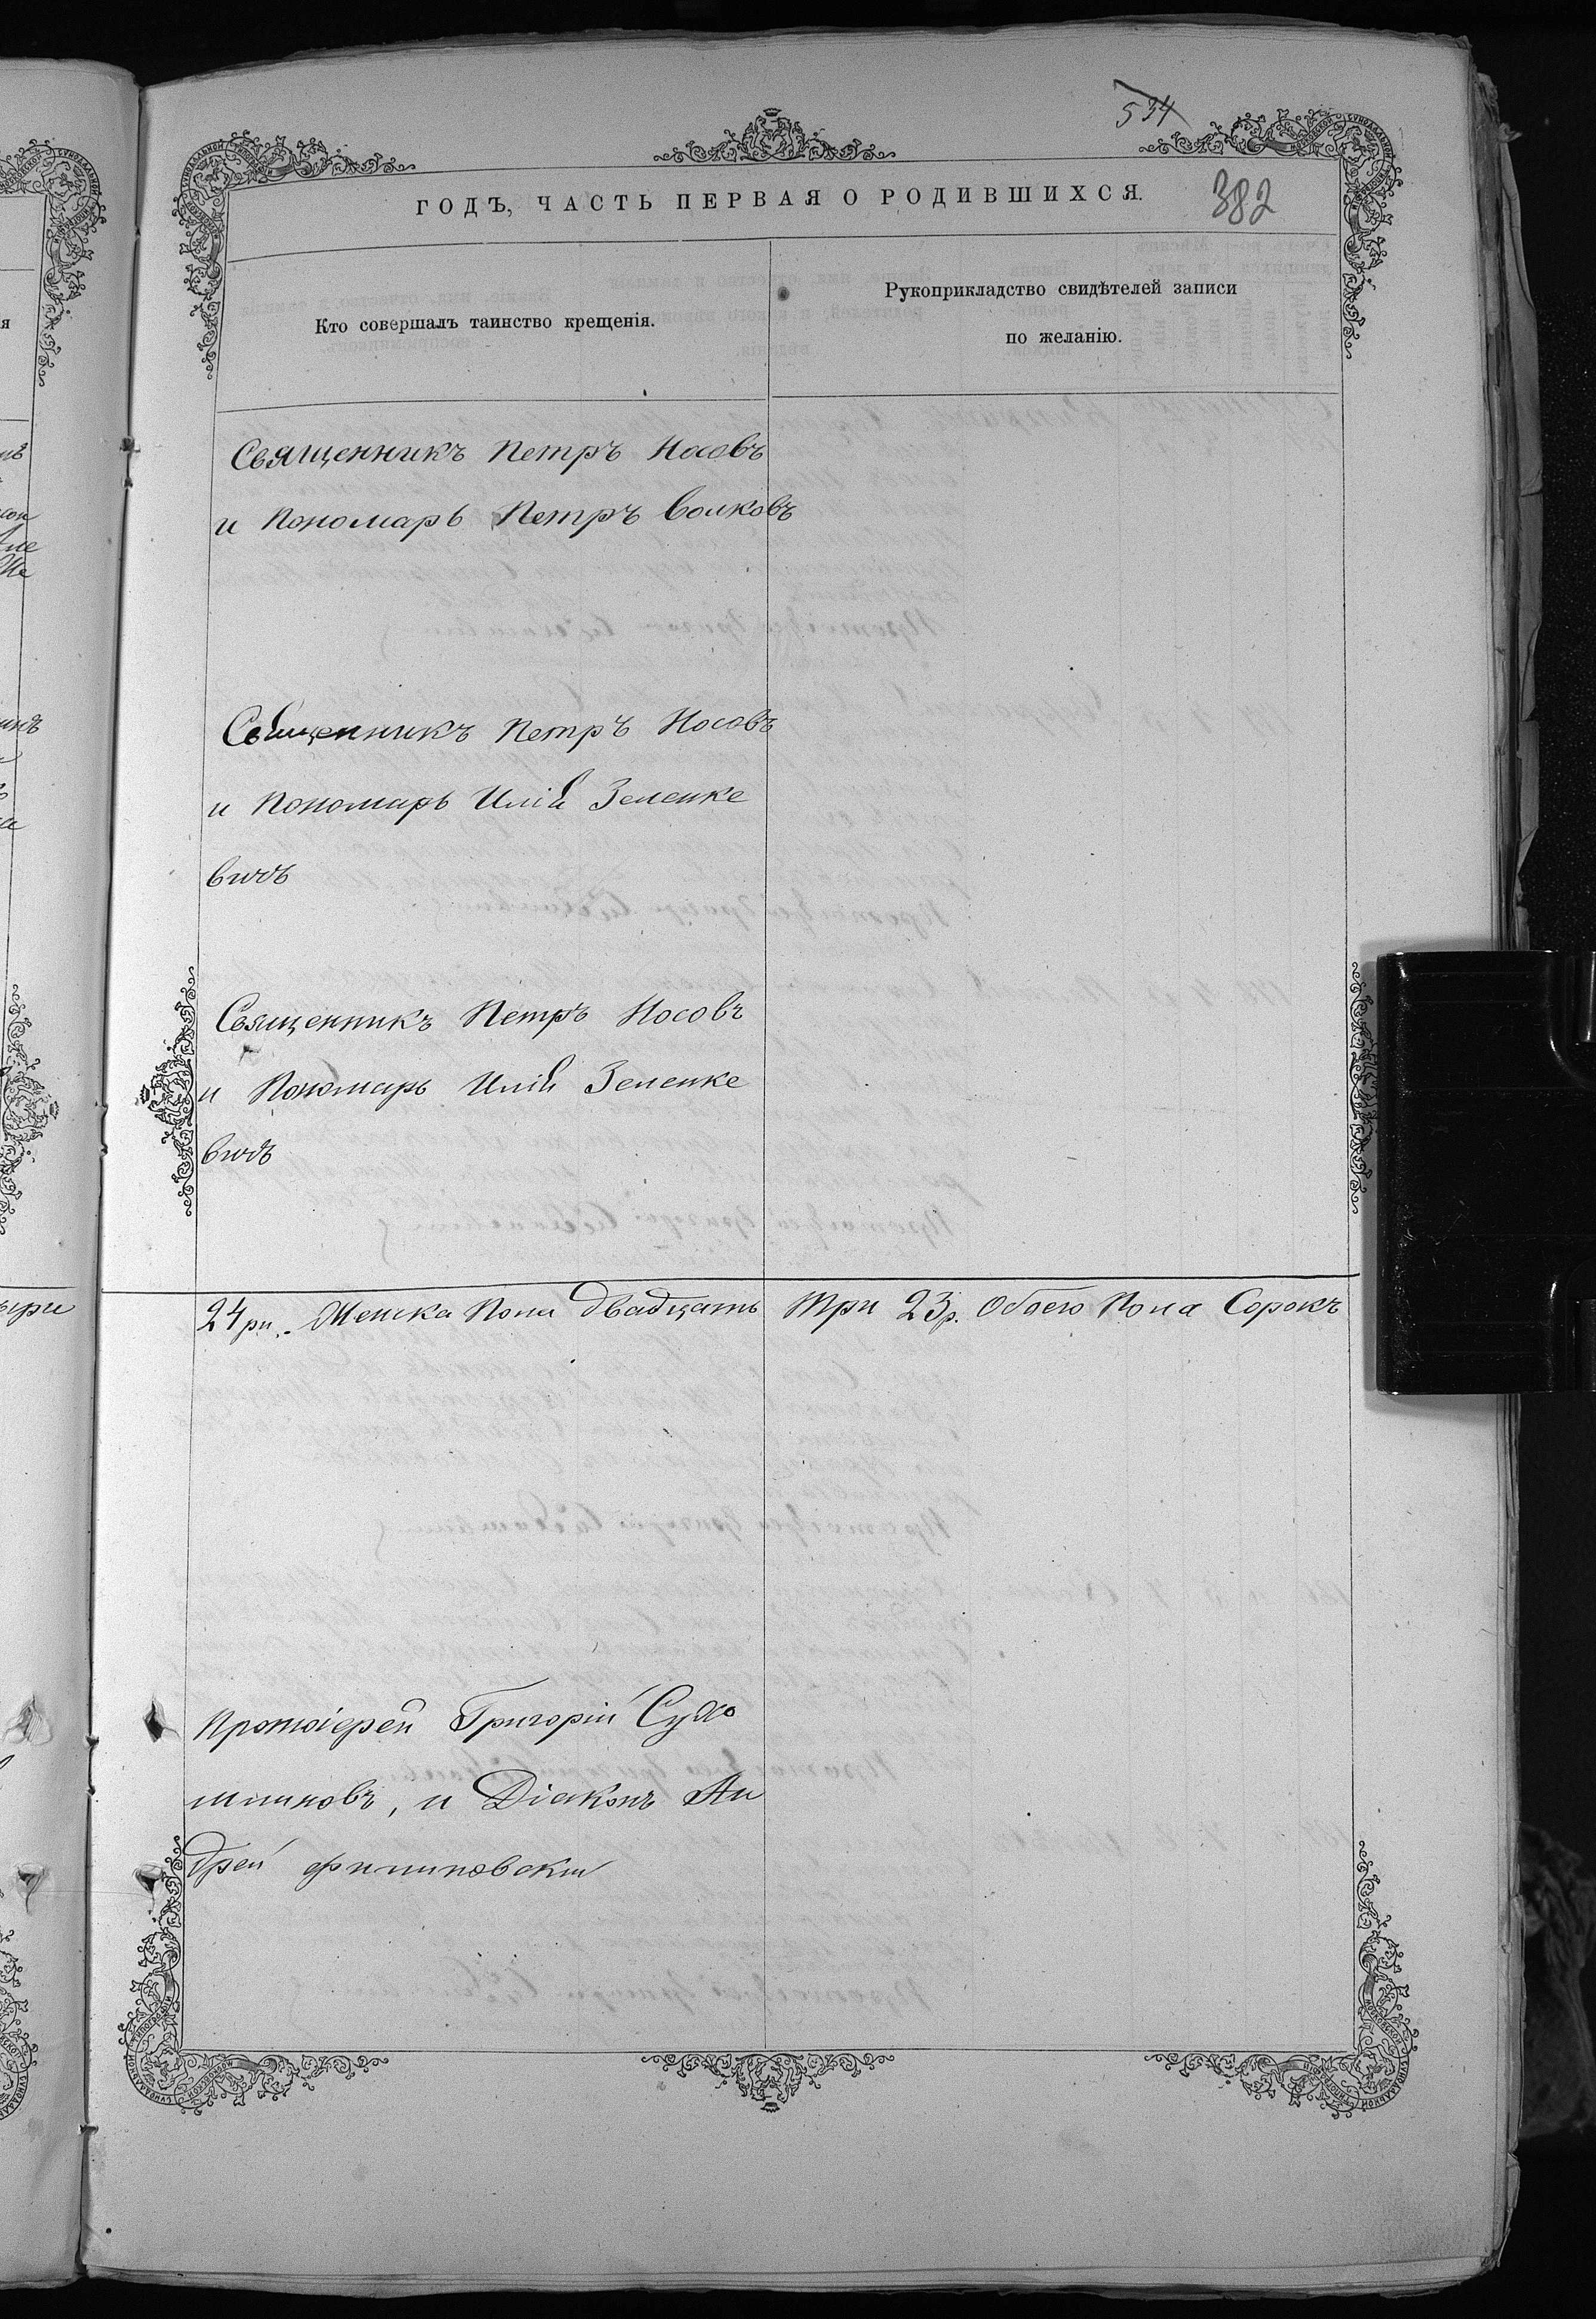 534
382
ГОДЪ, ЧАСТЬ ПЕРВАЯ О РОДИВШИХСЯ.
Кто совершалъ таинство крещенія.
Рукоприкладство свидѣтелей записи
по желанію.
Священникъ Петръ Носовъ
и Пономарь Петръ Волковъ
Священникъ Петръ Носовъ
и Пономарь Илія Зеленке
вичъ
Священникъ Петръ Носовъ
и Пономарь Илія Зеленке
вичъ
24 рп. Женска Пола двадцать три 23 р. Обоего Пола Сорокъ
Протоіерей Григорій Сухо
млиновъ, и Діаконъ Ан
дрей Филиповскій